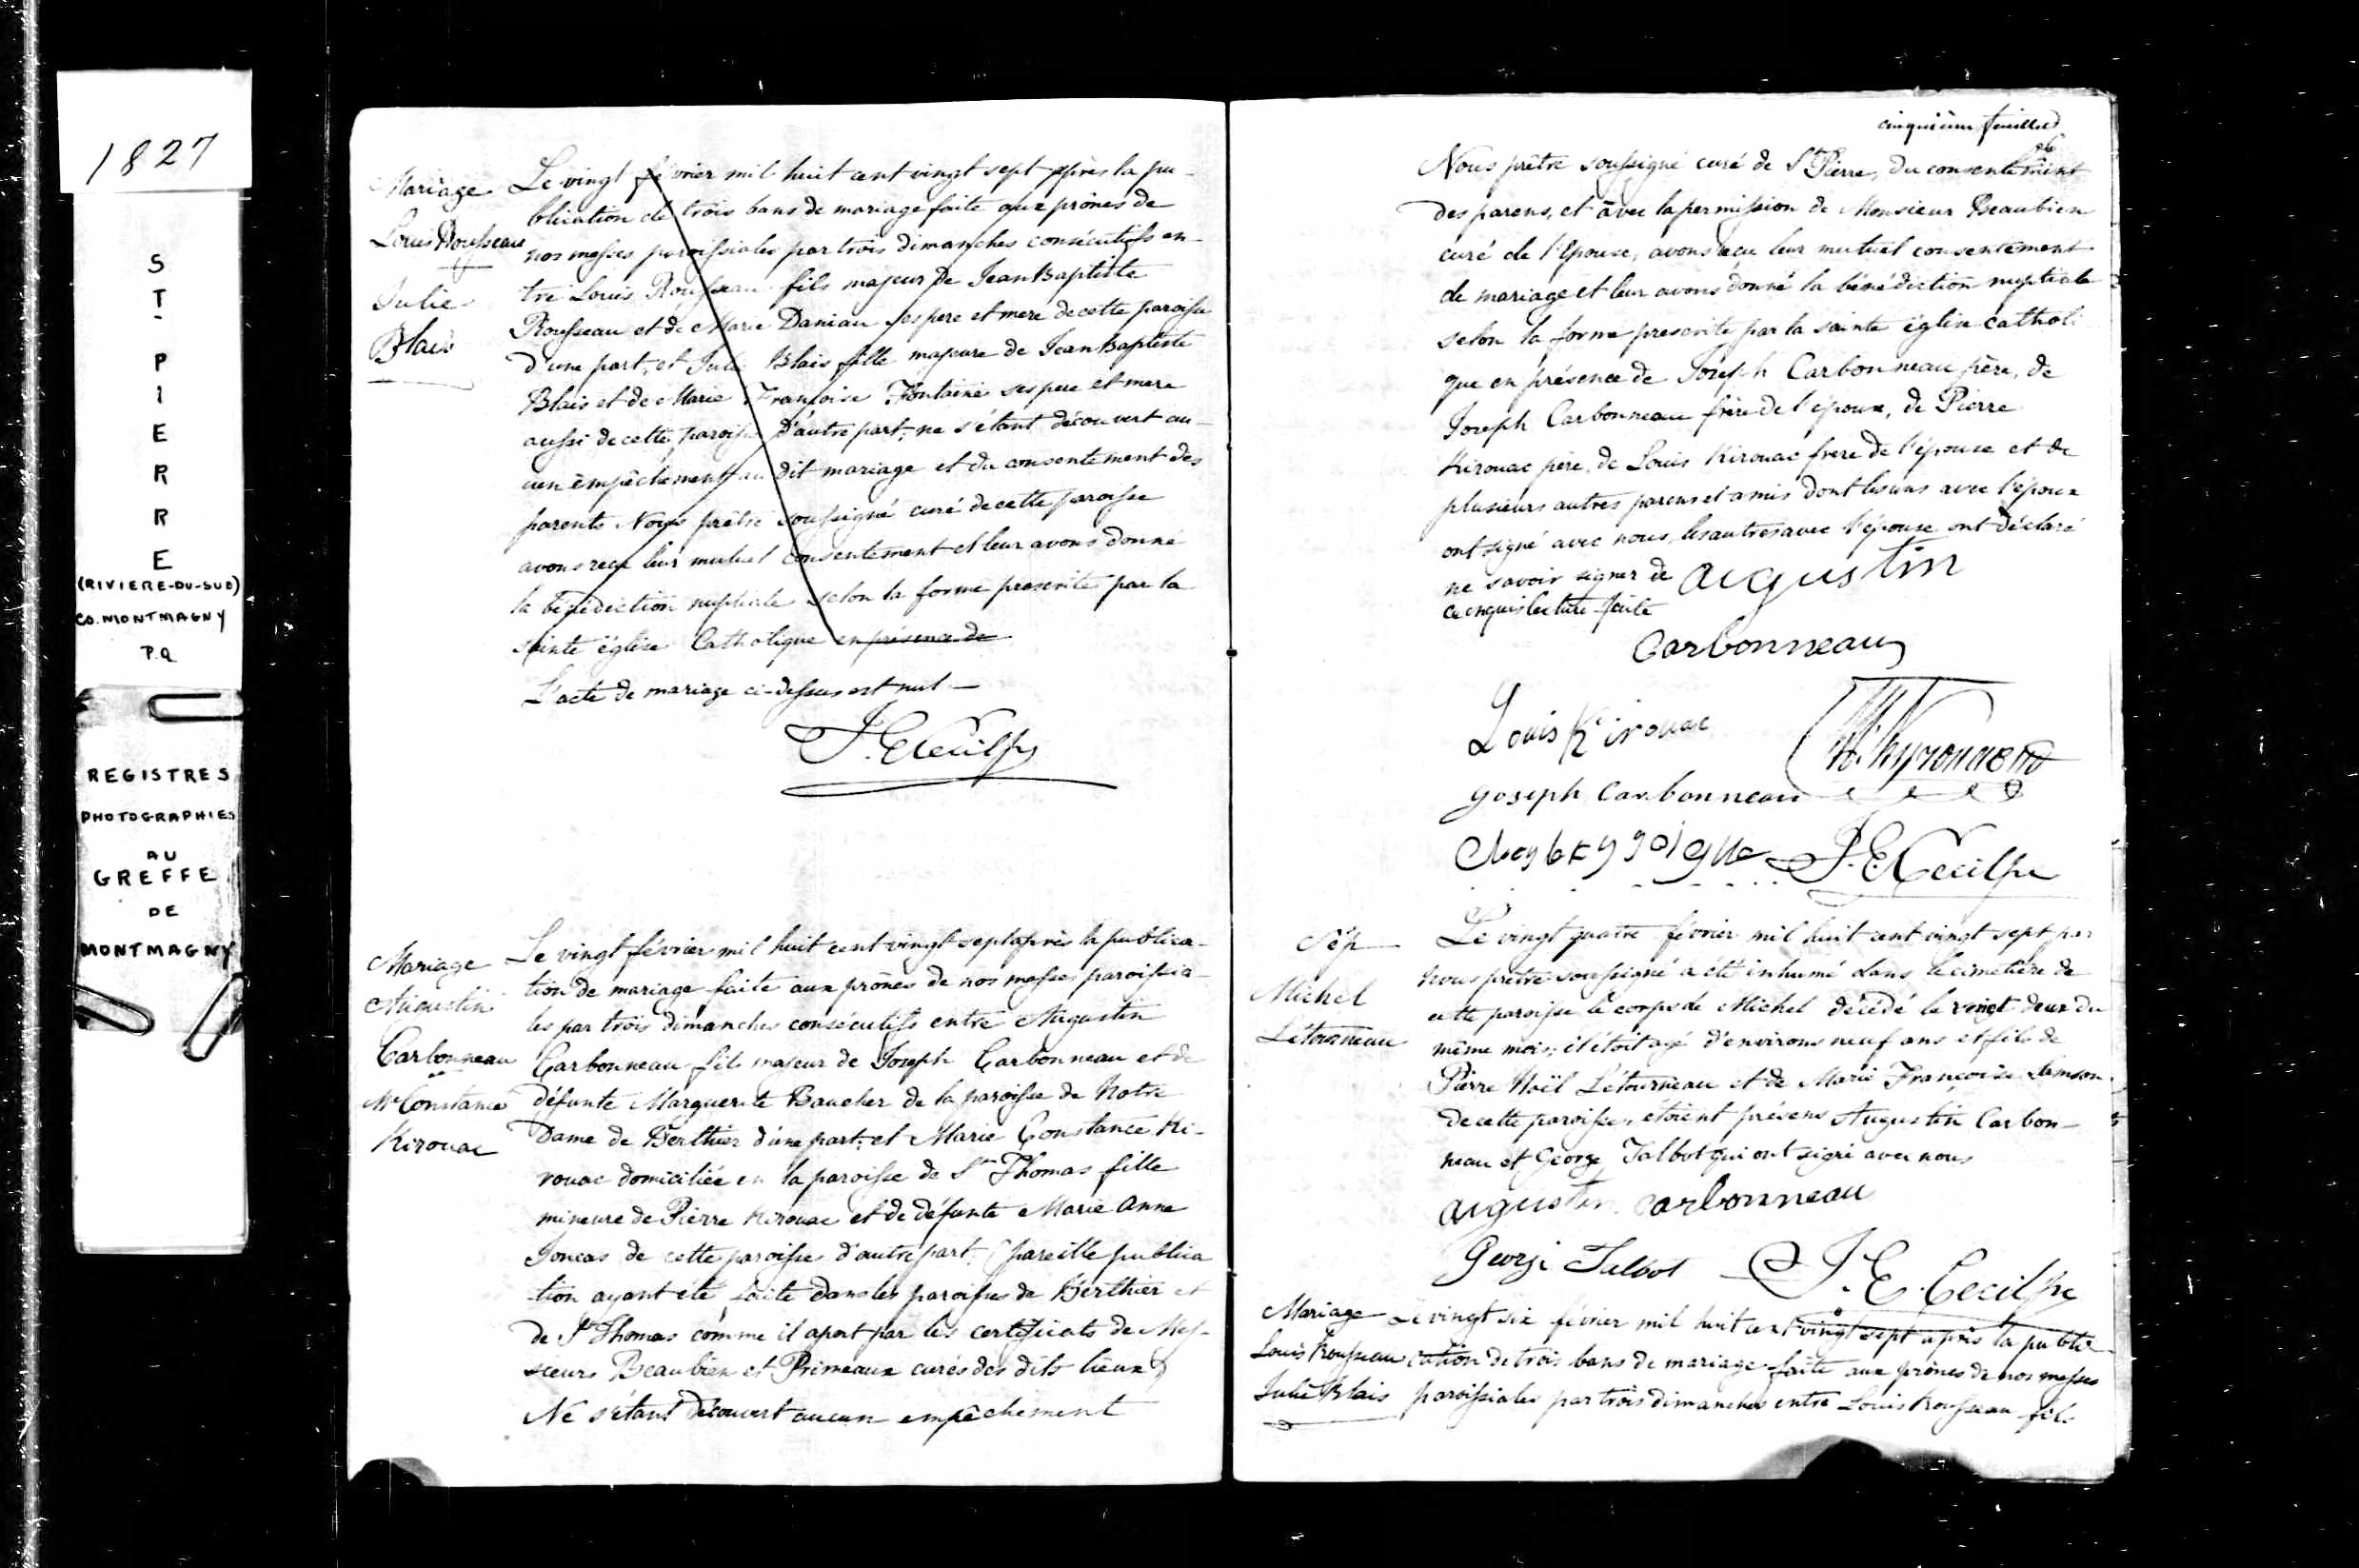 1827
ST-PIERRE
(RIVIERE-DU-SUD)
CO. MONTMAGNY
P.Q
REGISTRES
PHOTOGRAPHIES
AU
GREFFE
DE
MONTMAGNY
Mariage
Louis Rousseau
&
Julie
Blais
Le vingt février mil huit cent vingt sept après la pu-
blication de trois bans de mariage faite aux prônes de
nos messes paroissiales par trois dimanches consécutifs en-
tre Louis Rousseau fils majeur de Jean Baptiste
Rousseau et de Marie Daniau ses pere et mere de cette paroisse
d'une part, et Julie Blais fille majeure de Jean Baptiste
Blais et de Marie Françoise Fontaine ses pere et mere
aussi de cette paroisse d'autre part; ne s'étant découvert au-
cun empêchement au dit mariage et du consentement des
parents Nous prêtre soussigné curé de cette paroisse
avons reçu leur mutuel consentement et leur avons donné
la bénédiction nuptiale selon la forme prescrite par la
sainte église Catholique en présence de
L'acte de mariage ci-dessus est nul —
J. E. Cecil Ptre
Mariage
Augustin
Carbonneau
&
M. Constance
Kirouac
Le vingt février mil huit cent vingt sept après la publica-
tion de mariage faite aux prônes de nos messes paroissia-
les par trois dimanches consécutifs entre Augustin
Carbonneau fils majeur de Joseph Carbonneau et de
défunte Marguerite Baucher de la paroisse de Notre
Dame de Berthier d'une part; et Marie Constance Ki-
rouac domiciliée en la paroisse de St Thomas fille
mineure de Pierre Kirouac et de défunte Marie Anne
Joncas de cette paroisse d'autre part. (pareille publica
tion ayant été faite dans les paroisses de Berthier et
de St Thomas comme il apert par les certificats de Mes-
sieurs Beaubien et Primeaux curés des dits lieux)
Ne s'étant découvert aucun empêchement
cinquième feuillet
Nous prêtre soussigné curé de St Pierre, du consentement
des parens, et avec la permission de Monsieur Beaubien
curé de l'Epouse, avons reçu leur mutuel consentement
de mariage et leur avons donné la bénédiction nuptiale
selon la forme prescrite par la sainte église catholi
que en présence de Joseph Carbonneau père, de
Joseph Carbonneau frère de l'époux, de Pierre
Kirouac père, de Louis Kirouac frere de l'épouse et de
plusieurs autres parens et amis dont les uns avec l'époux
ont signé avec nous, les autres avec l'épouse ont déclaré
ne savoir signer de
ce enquis lecture faite
augustin
Carbonneau
Louis Kirouac
Joseph Carbonneau
J. E. Cecil Ptre
Sép
Michel
Létourneau
Le vingt quatre février mil huit cent vingt sept par
nous prêtre soussigné a été inhumé dans le cimetière de
cette paroisse le corps de Michel décédé le vingt deux du
même mois; il étoit agé d'environs neuf ans et fils de
Pierre Noël Létourneau et de Marie Françoise Samson
de cette paroisse, étoient présens Augustin Carbon-
neau et George Talbot qui ont signé avec nous
augustin carbonneau
George Talbot J. E. Cecil Ptre
Mariage
Louis Rousseau
Julie Blais
Le vingt six février mil huit cent vingt sept après la publi-
cation de trois bans de mariage faite aux prônes de nos messes
paroissiales par trois dimanches entre Louis Rousseau fils